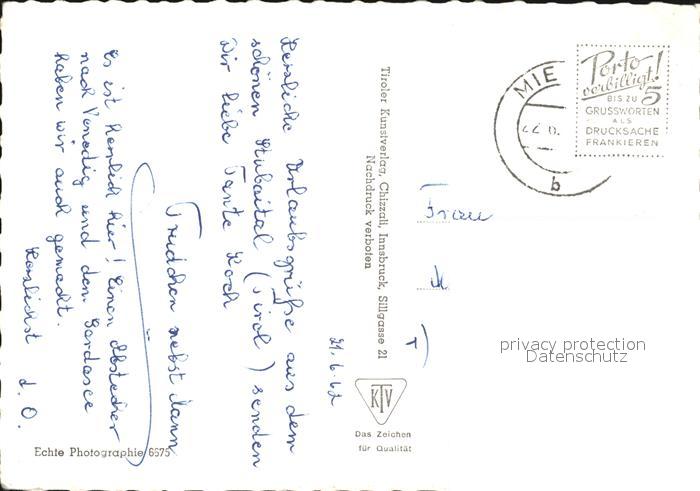 21.6.62
Herzliche Urlaubsgrüße aus dem
schönen Stubaital (Tirol) senden
Dir liebe Tante Koch
Trudchen nebst Mann
Es ist herrlich hier! Einen Abstecher
nach Venedig und dem Gardasee
haben wir auch gemacht.
Herzlichst d. O.
Echte Photographie 6675
Tiroler Kunstverlag, Chizzali, Innsbruck, Sillgasse 21
Nachdruck verboten
KTV
Das Zeichen
für Qualität
MIE
b
Porto
verbilligt!
BIS ZU 5
GRUSSWORTEN
ALS
DRUCKSACHE
FRANKIEREN
Frau
privacy protection
Datenschutz